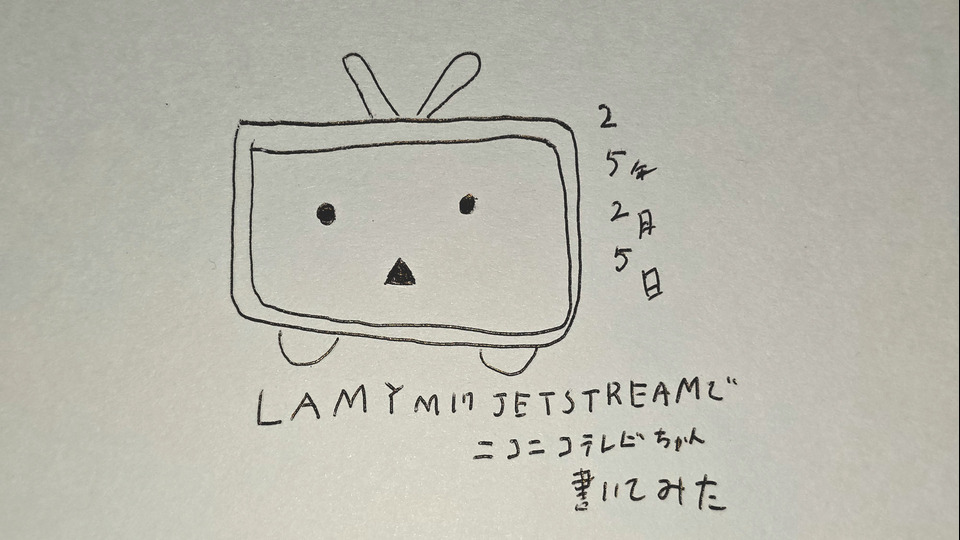 25年2月5日
LAMY M17 JETSTREAMで
ニコニコテレビちゃん
書いてみた